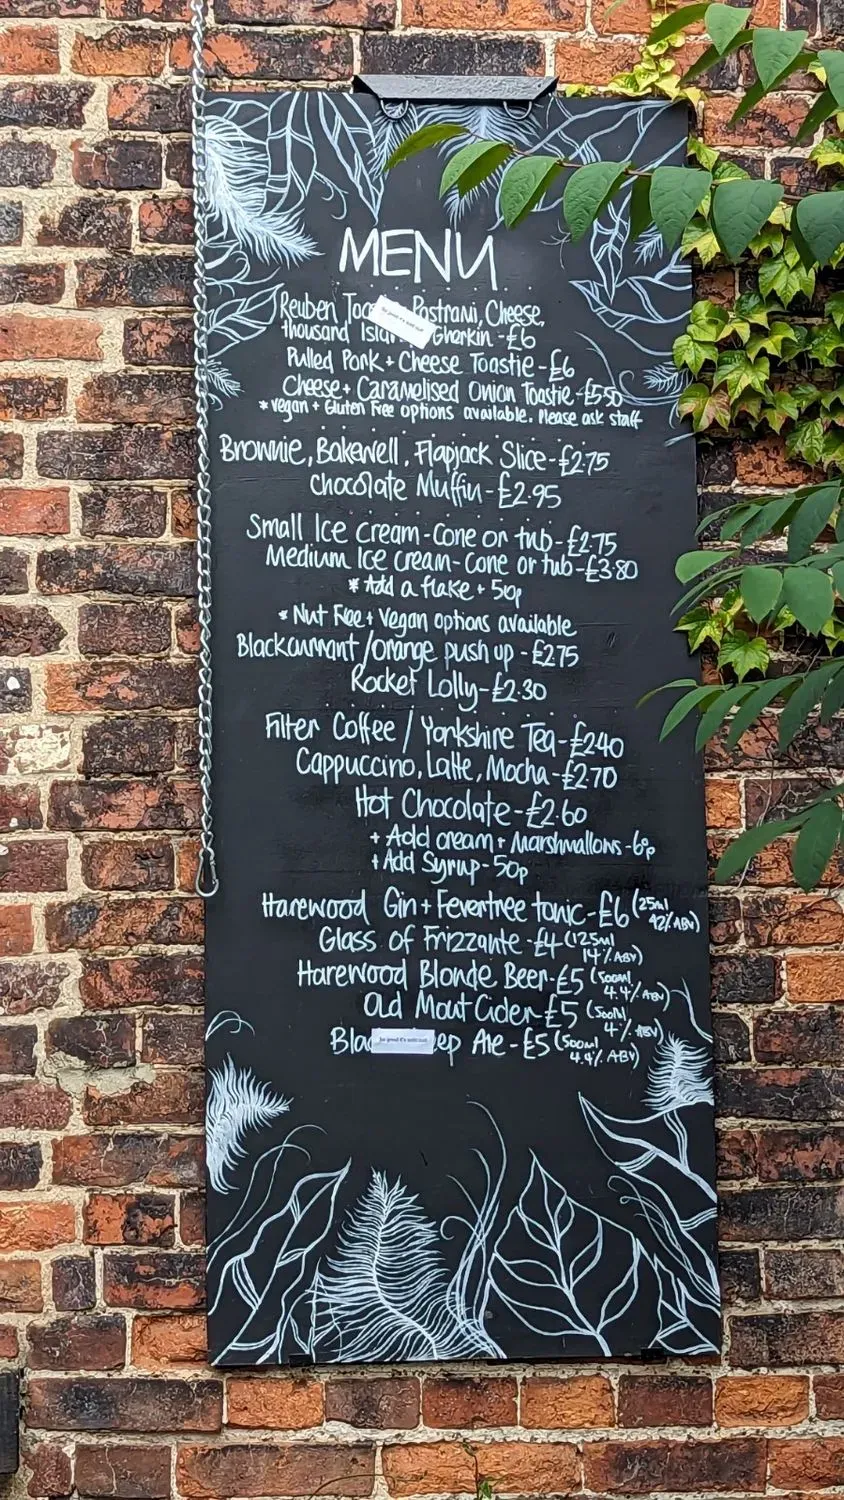 MENU
Reuben Pastrami, Cheese,
thousand Gherkin - £6
Pulled Pork + Cheese Toastie - £6
Cheese + Caramelised Onion Toastie - £5.50
* Vegan + Gluten Free options available. Please ask staff
Brownie, Bakewell, Flapjack Slice - £2.75
Chocolate Muffin - £2.95
Small Ice cream - Cone or tub - £2.75
Medium Ice cream - Cone or tub - £3.80
* Add a flake + 50p
* Nut Free + Vegan options available
Blackcurrant / orange push up - £2.75
Rocket Lolly - £2.30
Filter Coffee / Yorkshire Tea - £2.40
Cappuccino, Latte, Mocha - £2.70
Hot Chocolate - £2.60
+ Add cream + Marshmallons - 60p
+ Add Syrup - 50p
Harewood Gin + Fevertree tonic - £6 (25ml 42% ABV)
Glass of Frizzante - £4 (125ml 14% ABV)
Harewood Blonde Beer - £5 (500ml 4.4% ABV)
Old Mout Cider - £5 (500ml 4% ABV)
Ale - £5 (500ml 4.4% ABV)